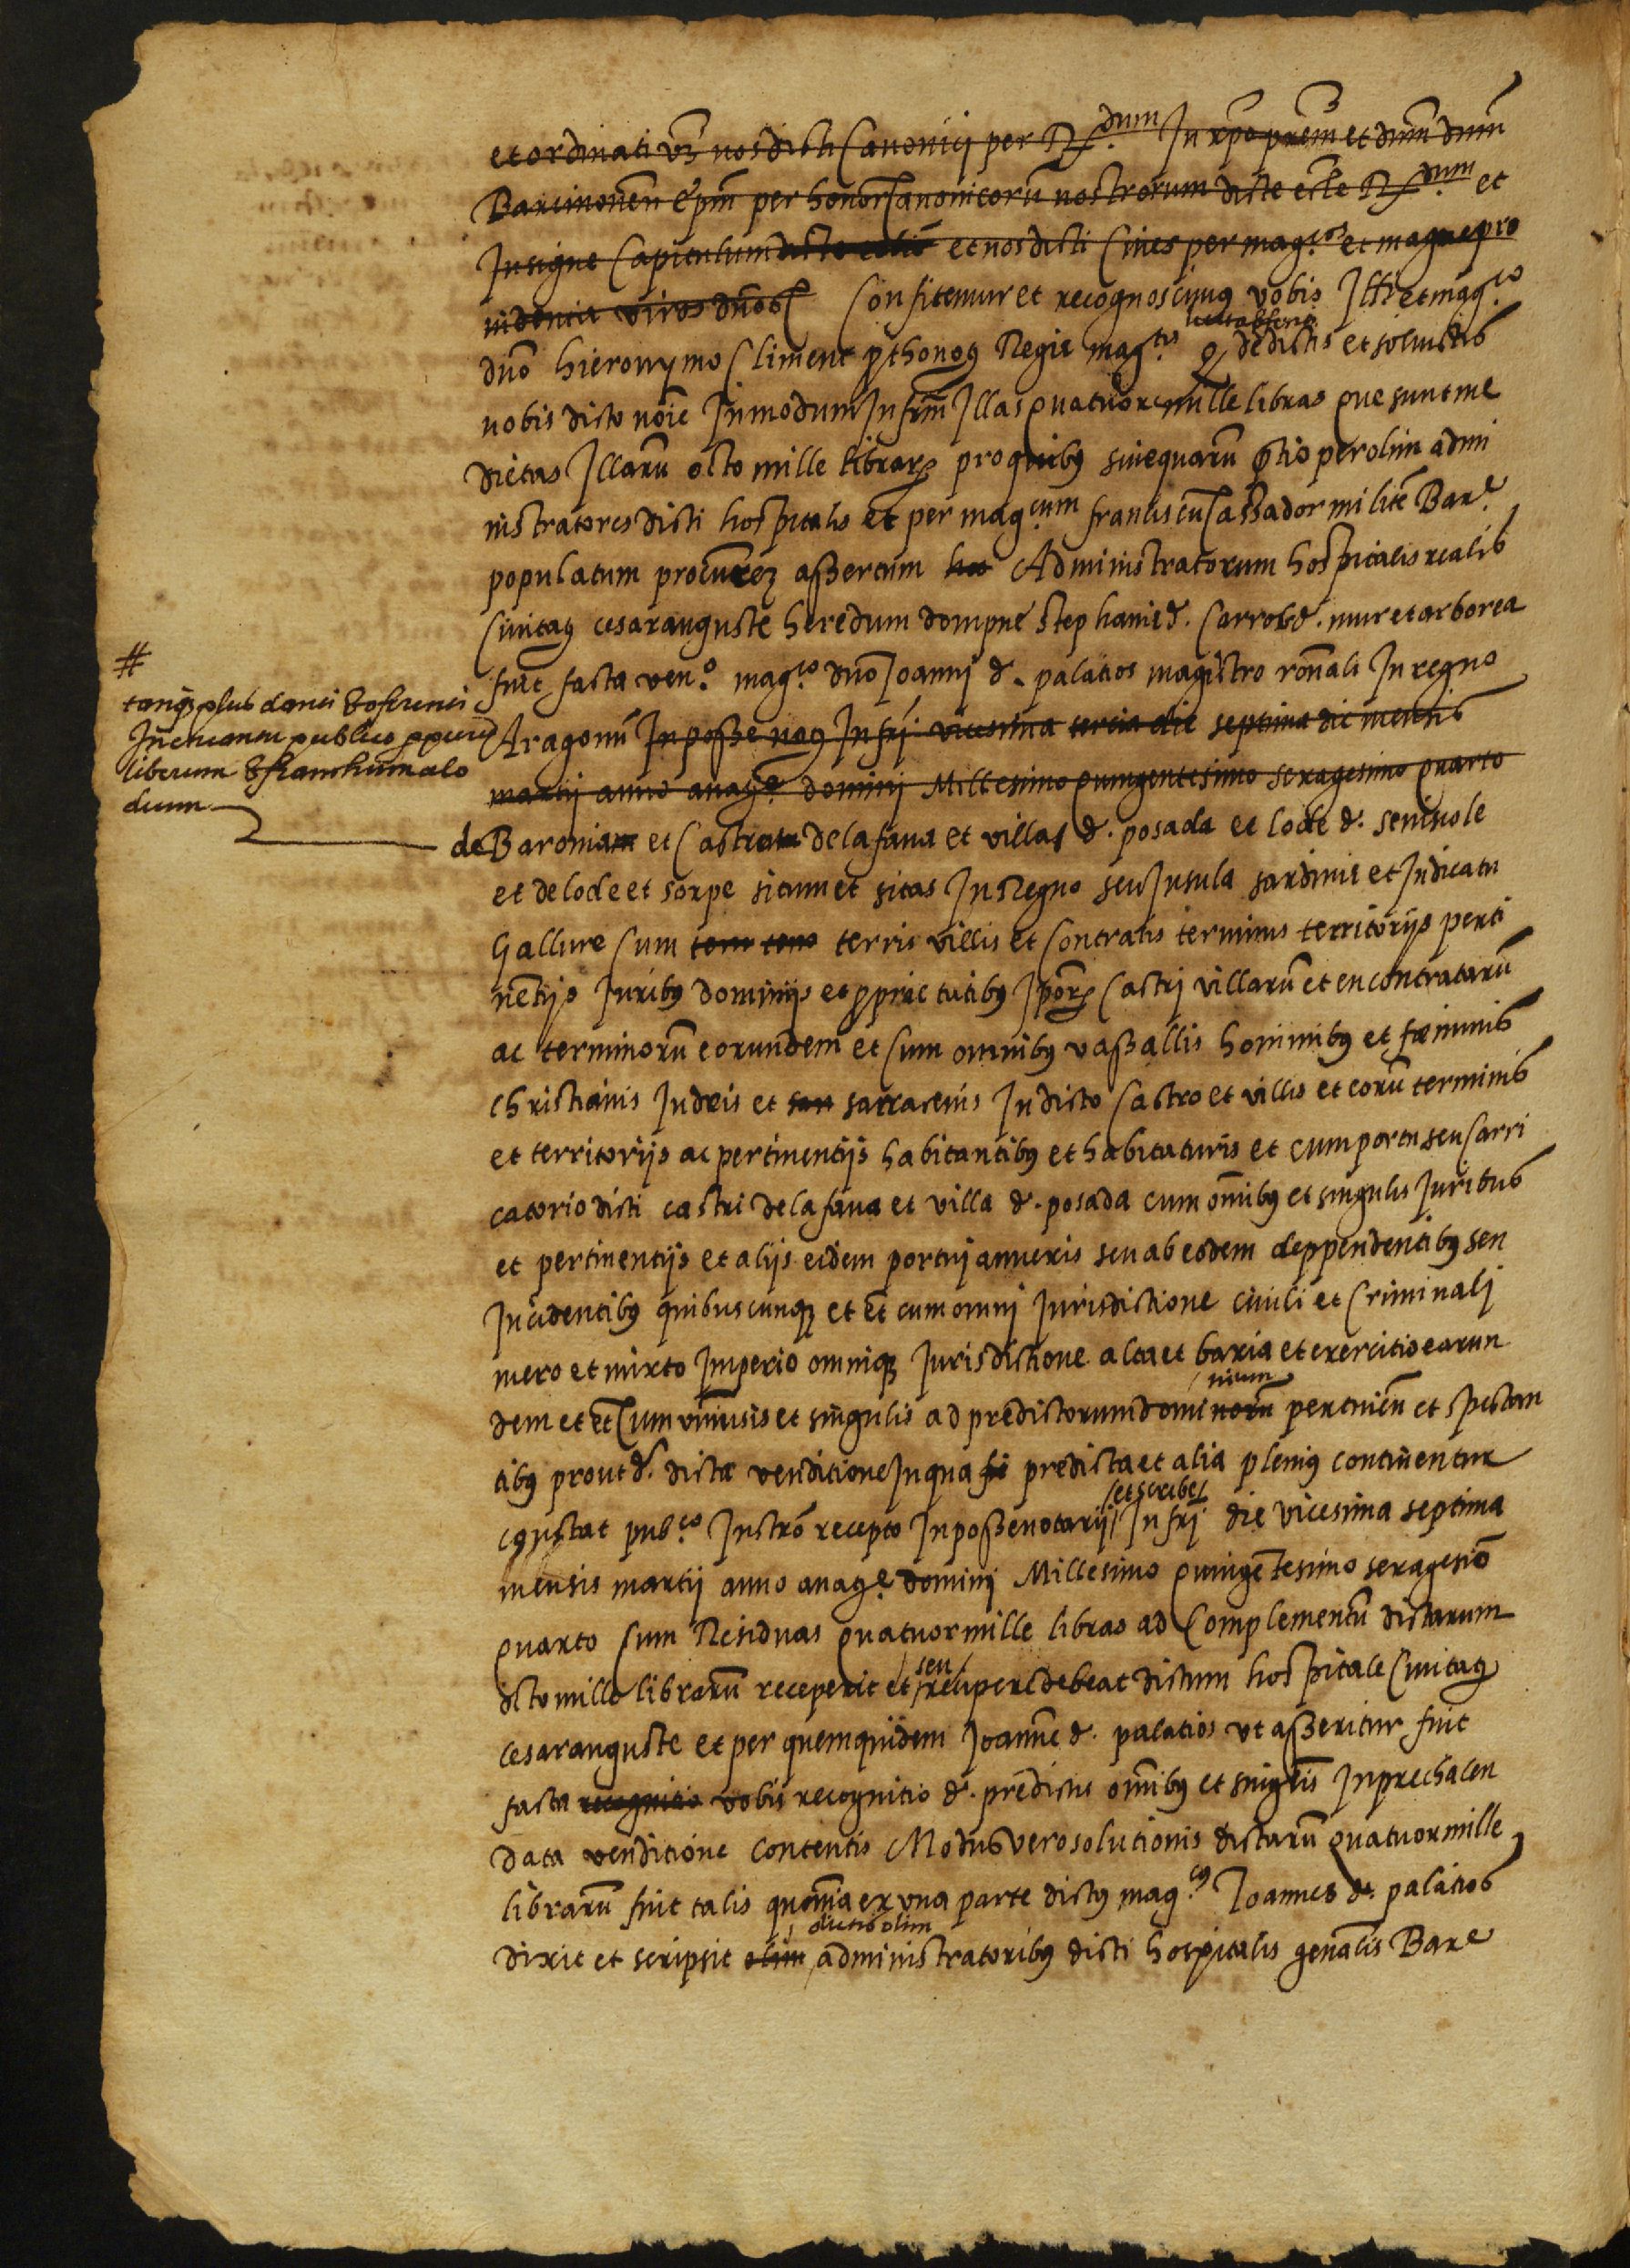 et ordinati vz nos dicti Canonici per Rx.dum In xpo prem et dnm dnm
Barcinonen Epm per honor Canonicorũ nostrorum dicte eccle Rx.dum et
Insigne Capitulum et nos dicti Cives per mag.cos et magne pro
videncie viros dnos Confitemur et recognoscimus vobis Illri et mag.co
dno hieronymo Climent pthonoꝰ Regie mag.tis q dedistis et solvistis
nobis dicto noie In modum Infrm Illas quatuor mille libras que sunt me
dietas Illarũ octo mille librarꝝ pro quibꝰ sive quarũ ptio per olim admi
nistratores dicti hospitalis et per mag.cum franciscũ Cassador militẽ Bar.e
populatum procurez assertum hos Administratorum hospitalis realis
Civitaꝰ cesarauguste heredum dompne Stephanie d. Carros d. mur et arborea
#
fuit facta ven.o mag.co dno Joannj d. palatios magistro ronali In regno
tanqꝫ plus danti & oferenti
Inencantu publico p puro
liberum & franchum alo
dium
Aragonũ In posse noꝰ Infrj vicesima tercia die septima die mensis
martij anno a natꝰ.e dominj Millesimo quingentesimo sexagesimo quarto
de Baronia et Castro dela fava et villas d. posada et lode d. seniscole
et de lode et sorpe situm et sitas In Regno seu Insula sardinie et Judicatu
Gallure Cum terris villis et Contratis terminis territorijs perti
nẽtijs Juribꝰ dominijs et pprietatibꝰ Iporꝝ Castrj villarũ et encontratarũ
ac terminorũ eorumdem et Cum omnibꝰ vassallis hominibꝰ et fœminis
Christianis Judeis et san sarracenis In dicto Castro et villis et eorũ terminis
et territorijs ac pertinentijs habitantibꝰ et habitaturis et cum portu seu Carri
catorio dicti castri dela fava et villa d. posada cum omibꝰ et singulis Juribus
et pertinentijs et alijs eidem portuj annexis seu ab eodem deppendentibꝰ seu
Incidentibꝰ quibuscunqꝫ et et cum omnj Jurisdictione civili et Criminalj
mero et mixto Imperio omniqꝫ Jurisdictione alta et baxia et exercitio earun
nium
dem et et Cum univsis et singulis ad predictorum dominorũ pertiniẽn et spectan
tibꝰ prout d. dicta venditione In qua hi predicta et alia plenius continentur
et scribe
constat pub.co Instrõ recepto In posse notarij Infrj die vicesima septima
mensis martij anno a natꝰ.e dominj Millesimo quingẽtesimo sexagesimo
quarto Cum Residuas quatuor mille libras ad Complementũ dictarum
seu
octo mille librarũ receperit et recipere debeat dictum hospitale Civitaꝰ
cesarauguste et per quemquidem Joannẽ d. palatios ut asseritur fuit
facta recognitio vobis recognitio d. predictis omibꝰ et singlis In prechalen
data venditione contentis Modus vero solutionis dictarũ quatuor mille
librarũ fuit talis quoniam ex una parte dictꝰ mag.cꝰ Joannes d. palatios
dictis olim
dixit et scripsit olim administratoribꝰ dicti hospitalis genalis Bar.e